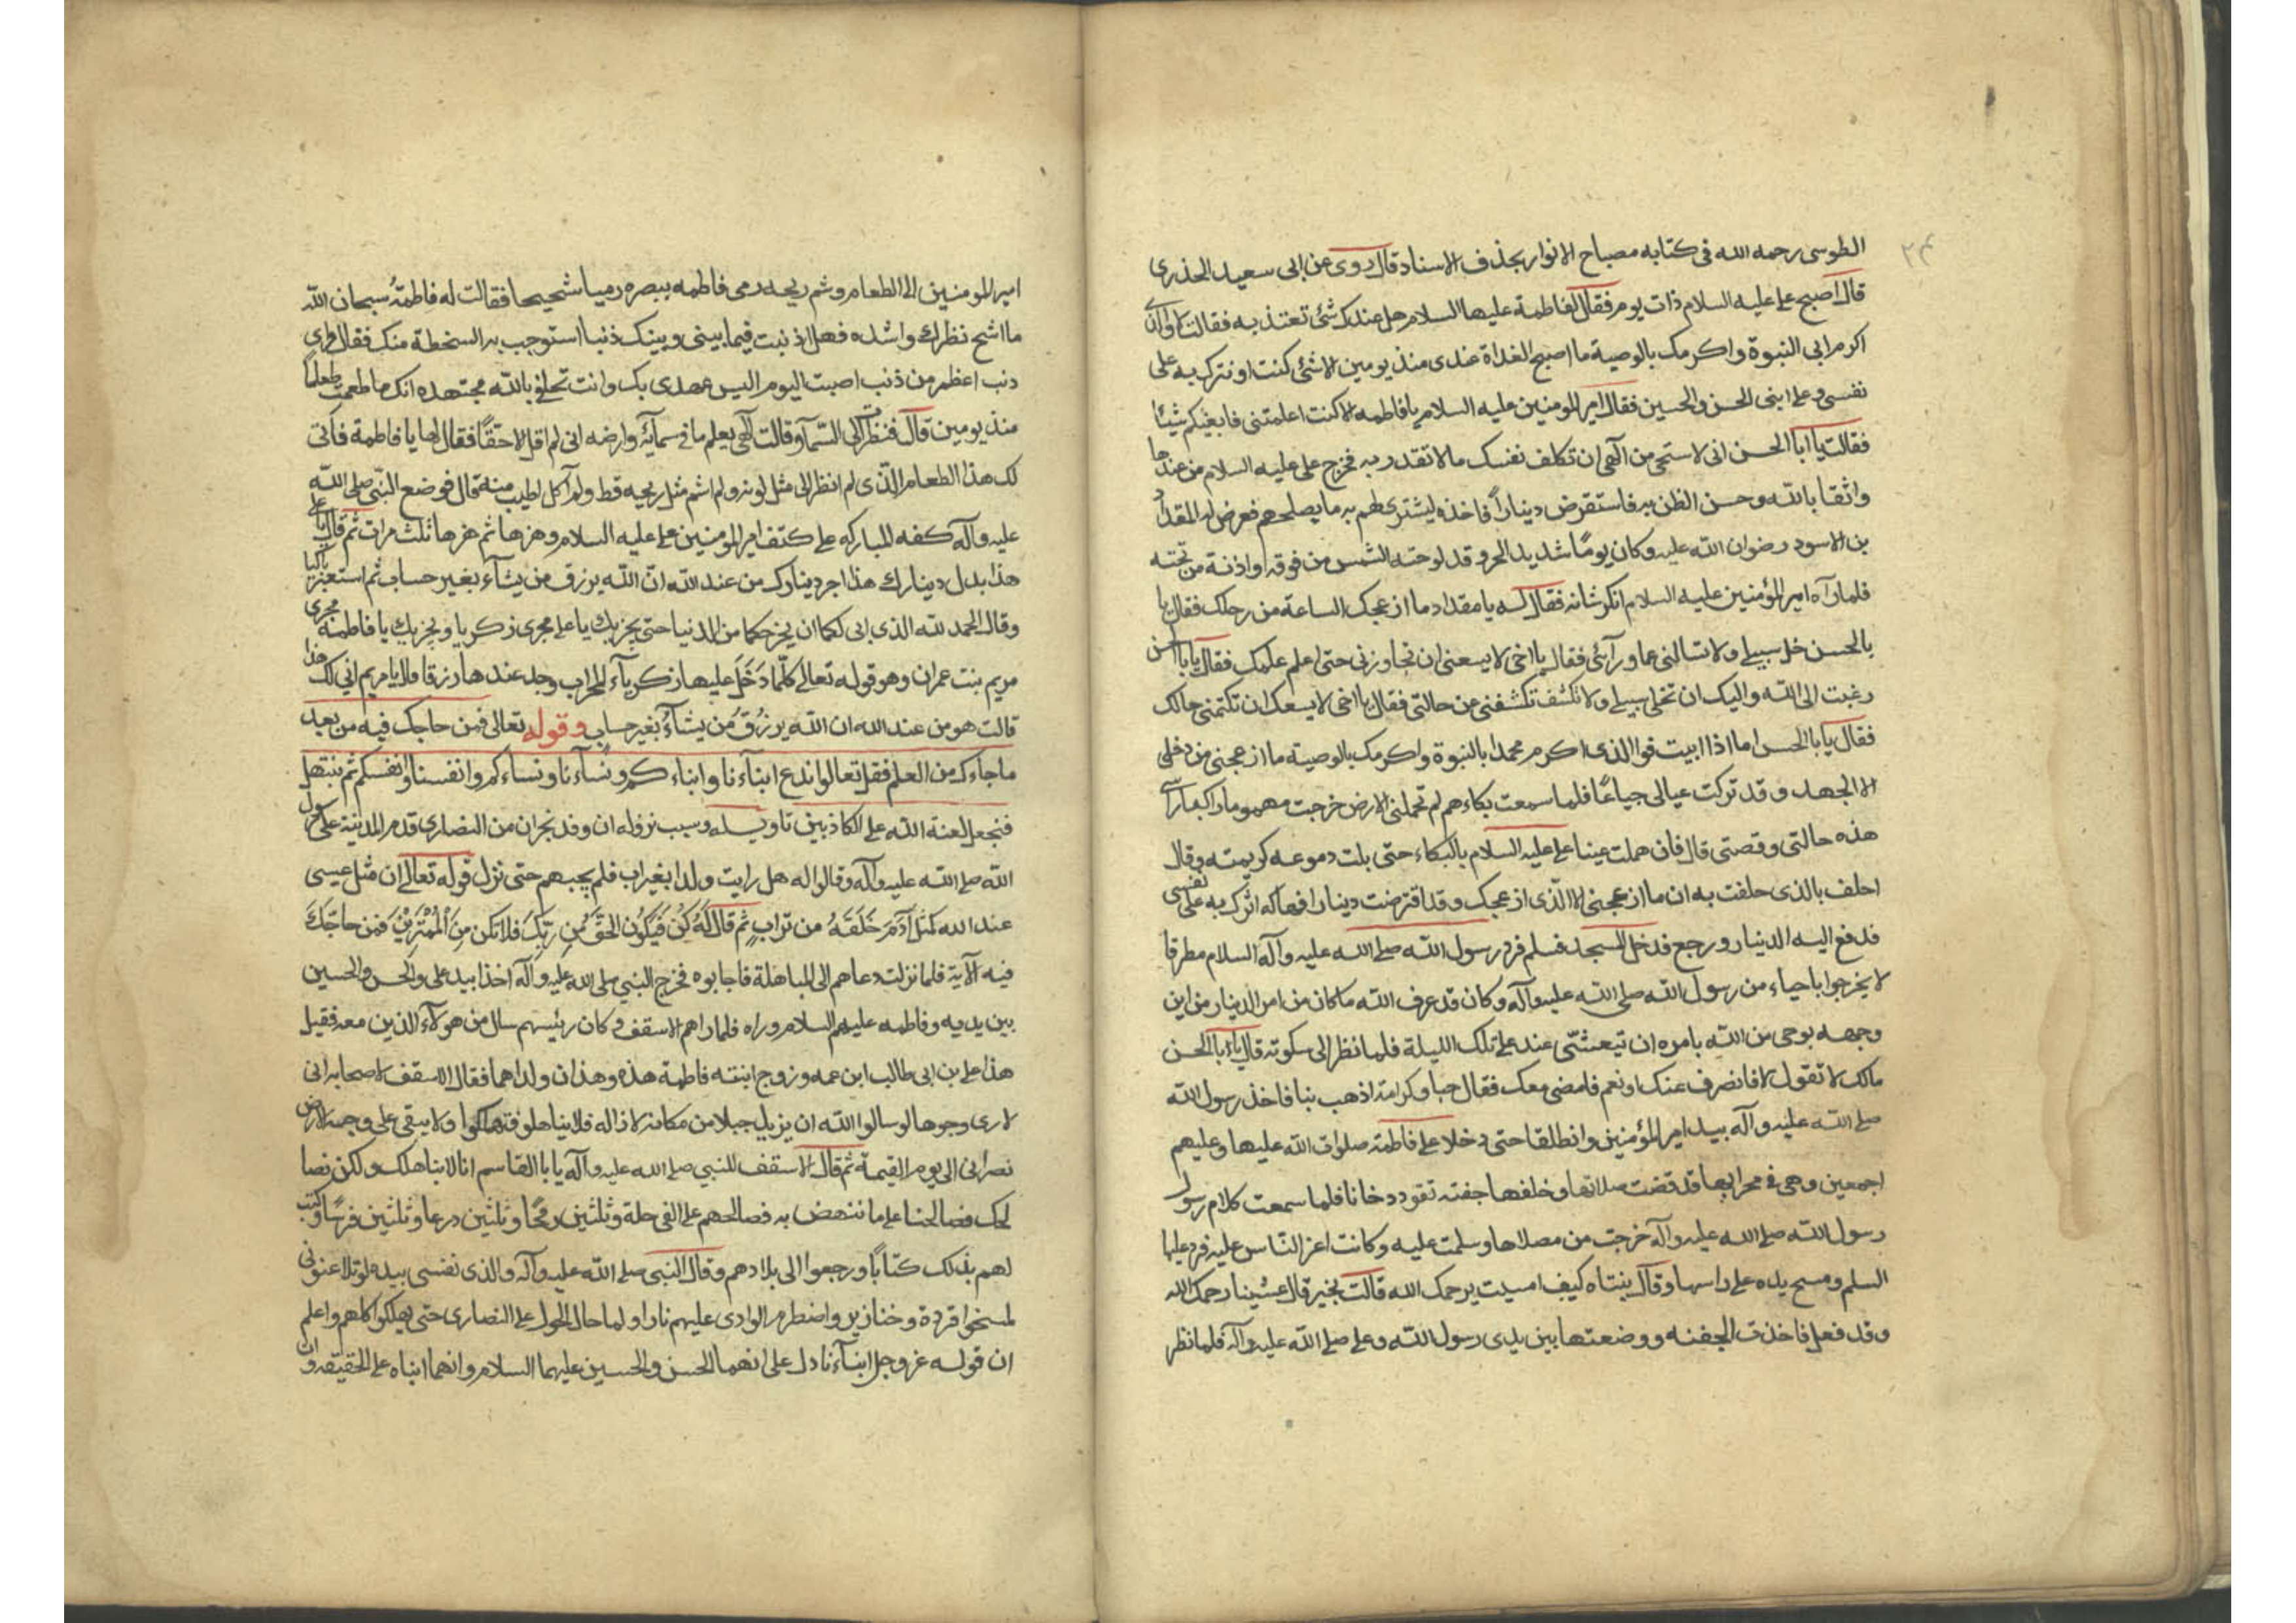 ٢٤
الطوسى رحمه الله فى كتابه مصباح الانوار بحذف الاسناد قال روى عن ابى سعيد الخذرى
قال اصبح على عليه السلام ذات يوم فقال لفاطمة عليها السلام هل عندك شئ تغتذ به فقالت لا والذى
اكرم ابى النبوة واكرمك بالوصية ما اصبح الغداة عندى منذ يومين الا شئ كنت اوثرك به على
نفسى وعلى ابنى الحسن والحسين فقال امير المومنين عليه السلام يا فاطمه الا كنت اعلمتنى فابغيكم شيئا
فقالت يا ابا الحسن انى لاستحى من الهى ان تكلف نفسك ما لا تقدر به فخرج على عليه السلام من عندها
واثقا بالله وحسن الظن به فاستقرض ديناراً فاخذه ليشترى لهم به ما يصلحهم فعرض له المقداد
بن الاسود رضوان الله عليه وكان يوماً شديد الحر وقد لوحته الشمس من فوقه واذته من تحته
فلما رآه امير المؤمنين عليه السلام انكر شانه فقال له يا مقداد ما ازعجك الساعة من رحلك فقال يا
بالحسن خل سبيلى ولا تسالنى عما ورآئى فقال يا اخى لا يسعنى ان تجاوزنى حتى اعلم علمك فقال يا با الحسن
رغبت الى الله واليك ان تخلى سبيلى ولا تكشف تكشفنى عن حالتى فقال يا اخى لا يسعك ان تكتمنى حالك
فقال يا با الحسن اما اذا ابيت فوالذى اكرم محمدا بالنبوة واكرمك بالوصية ما ازعجنى من رحلى
الا الجهد وقد تركت عيالى جياعًا فلما سمعت بكاءهم لم تحملنى الارض خرجت مهموما راكبا راسى
هذه حالتى وقصتى قال فان هملت عينا على عليه السلام بالبكاء حتى بلت دموعه كريمته وقال
احلف بالذى حلفت به ان ما ازعجنى الا الذى ازعجك وقد اقترضت دينارا فهاكه اثرك به على نفسى
فدفع اليه الدينار ورجع فدخل المسجد فسلم فرد رسول الله صلى الله عليه وآله السلام مطرقا
لا يخرجوا با حياء من رسول الله صلى الله عليه وآله وكان قد عرف الله ما كان من امر الدينار من اين
وجهه بوحى من الله بامره ان تيعشى عند على تلك الليلة فلما نظر الى سكوته قال يا ابا الحسن
مالك لا تقول لا فانصرف عنك او نعم فامضى معك فقال حبا وكرامة اذهب بنا فاخذ رسول الله
صلى الله عليه وآله بيد امير المؤمنين وانطلقا حتى دخلا على فاطمة صلوات الله عليها وعليهم
اجمعين وهى فى محرابها قد قضت صلاتها وخلفها جفنه تفور دخانا فلما سمعت كلام رسول
رسول الله صلى الله عليه وآله خرجت من مصلاها وسلمت عليه وكانت اعز الناس عليه فرد عليها
السلم ومسح يده على راسها وقال بنتاه كيف امسيت يرحمك الله قالت بخير قال عشينا رحمك الله
وقد فعل فاخذت الجفنه ووضعتها بين يدى رسول الله وعلى صلى الله عليه وآله فلما نظر
امير المومنين الى الطعام وشم ريحه رمى فاطمه ببصره رميا شحيحا فقالت له فاطمة سبحان الله
ما اشح نظرك واشده فهل اذنبت فيما بينى وبينك ذنبا استوجب به السخطة منك فقال واى
ذنب اعظم من ذنب اصبت اليوم اليس عهدى بك وانت تحلف بالله مجتهده انك ما طعمت طعاماً
منذ يومين قال فنظرت الى السمآء وقالت الهى يعلم ما فى سمآئه وارضه انى لم اقل الا حقًا فقال لها يا فاطمة فانى
لك هذا الطعام الذى لم انظر الى مثل لونه ولم اشم مثل ريحه قط ولم آكل اطيب منه قال فوضع النبى صلى الله
عليه وآله كفه المباركه على كتف امير المؤمنين على عليه السلام وهزها ثم هزها ثلث مرات ثم قال يا على
هذا بدل دينارك هذا اجر دينارك من عند الله ان الله يرزق من يشآء بغير حساب ثم استعبر باكيا
وقال الحمد لله الذى ابى لكما ان يخرجكما من الدنيا حتى يجريك يا على مجرى زكريا ويجريك يا فاطمة مجرى
مريم بنت عمران وهو قوله تعالى كلّما دَخَلَ عليها زكريآء المحراب وجد عندها رزقا قال يا مريم انى لك هذا
قالت هو من عند الله ان الله يرزُقُ من يشآءُ بغير حسابٍ وقوله تعالى فمن حاجك فيه من بعد
ما جاءك من العلم فقل تعالوا ندع ابنآءنا وابناءكم ونسآءنا ونساءكم وانفسنا وانفسكم ثم نبتهل
فنجعل لعنة الله على الكاذبين تاويله وسبب نزوله ان وفد نجران من النصارى قدم المدينة على رسول
الله صلى الله عليه وآله وقالوا له هل رايت ولدا بغير اب فلم يجبهم حتى نزل قوله تعالى ان مثل عيسى
عند الله كمثل آدَمَ خَلَقَهُ من ترابٍ ثم قال لَهُ كُنْ فَيَكُونُ الحَقُّ مِن رَبِّكَ فلا تكن مِنَ الْمُمْتَرِيْنَ فَمَن حاجّكَ
فيه الآية فلما نزلت دعاهم الى المباهلة فاجابوه فخرج النبي صلى الله عليه وآله اخذا بيد على والحسن والحسين
بين يديه وفاطمه عليهم السلام وراه فلما راهم الاسقف وكان رئيسهم سال من هولآء الذين معه فقيل
هذا على بن ابى طالب ابن عمه وزوج ابنته فاطمة هذه وهذان ولداهما فقال الاسقف لاصحابه انى
لارى وجوها لو سالوا الله ان يزيل جبلا من مكانه لازاله فلا تباهلوه فتهلكوا ولا يبقى على وجه الارض
نصرانى الى يوم القيمة ثم قال الاسقف للنبي صلى الله عليه وآله يا با القاسم انا لا نباهلك ولكن نصا
لحك فصالحنا على ما ننهض به فصالحهم على الفى حلة وثلثين رمحًا وثلثين درعا وثلثين فرسًا وكتب
لهم بذلك كتابًا ورجعوا الى بلادهم وقال النبى صلى الله عليه وآله والذى نفسى بيده لو تلاعنونى
لمسخوا قردة وخنازير واضطرم الوادى عليهم نارا ولما حال الحول على النصارى حتى يهلكوا كلهم واعلم
ان قوله عز وجل ابنآءنا دل على انهما الحسن والحسين عليهما السلام وانهما ابناه على الحقيقه وان